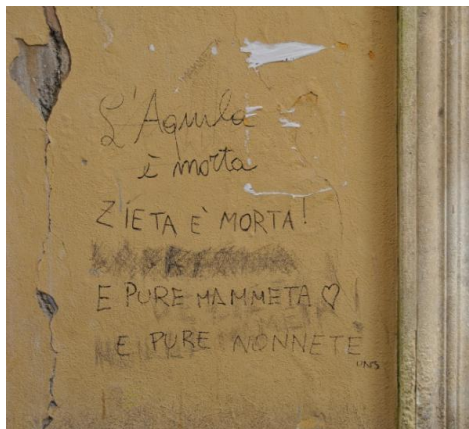 L'Aquila
è morta
ZIETA È MORTA!
E PURE MAMMETA ♡
E PURE NONNETE